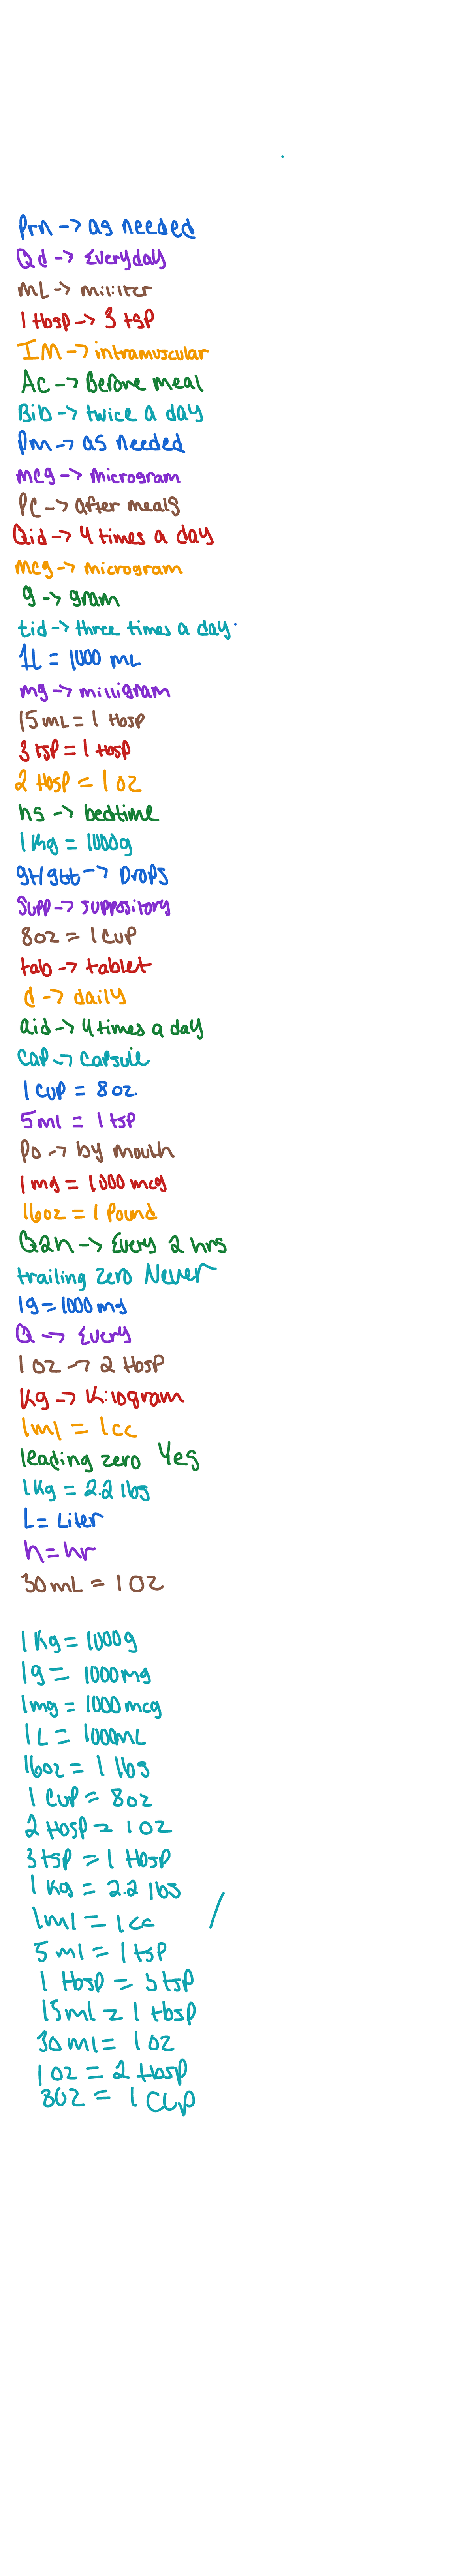 Prn -> as needed
Qd -> Everyday
mL -> mililiter
1 tbsp -> 3 tsp
IM -> intramuscular
AC -> Before meal
Bib -> twice a day
Pm -> as needed
mcg -> microgram
PC -> after meals
Qid -> 4 times a day
mcg -> microgram
g -> gram
tid -> three times a day
1L = 1000 mL
mg -> milligram
15 mL = 1 tbsp
3 tsp = 1 tbsp
2 tbsp = 1 oz
hs -> bedtime
1 kg = 1000g
gt/gtt -> Drops
Supp -> suppository
8oz = 1 cup
tab -> tablet
d -> daily
aid -> 4 times a day
cap -> capsule
1 cup = 8 oz.
5ml = 1 tsp
Po -> by mouth
1mg = 1,000 mcg
16oz = 1 Pound
Q2h -> Every 2 hrs
trailing zero Never
1g = 1000 mg
Q -> Every
1 oz -> 2 tbsp
Kg -> Kilogram
1ml = 1cc
leading zero Yes
1 Kg = 2.2 lbs
L = Liter
h = hr
30 mL = 1 oz
1 Kg = 1000g
1g = 1000mg
1mg = 1000 mcg
1 L = 1000mL
16oz = 1 lbs
1 cup = 8oz
2 tbsp = 1 oz
3 tsp = 1 tbsp
1 Kg = 2.2 lbs
1ml = 1cc /
5 ml = 1 tsp
1 tbsp = 3 tsp
15ml = 1 tbsp
30 ml = 1 oz
1 oz = 2 tbsp
8oz = 1 cup